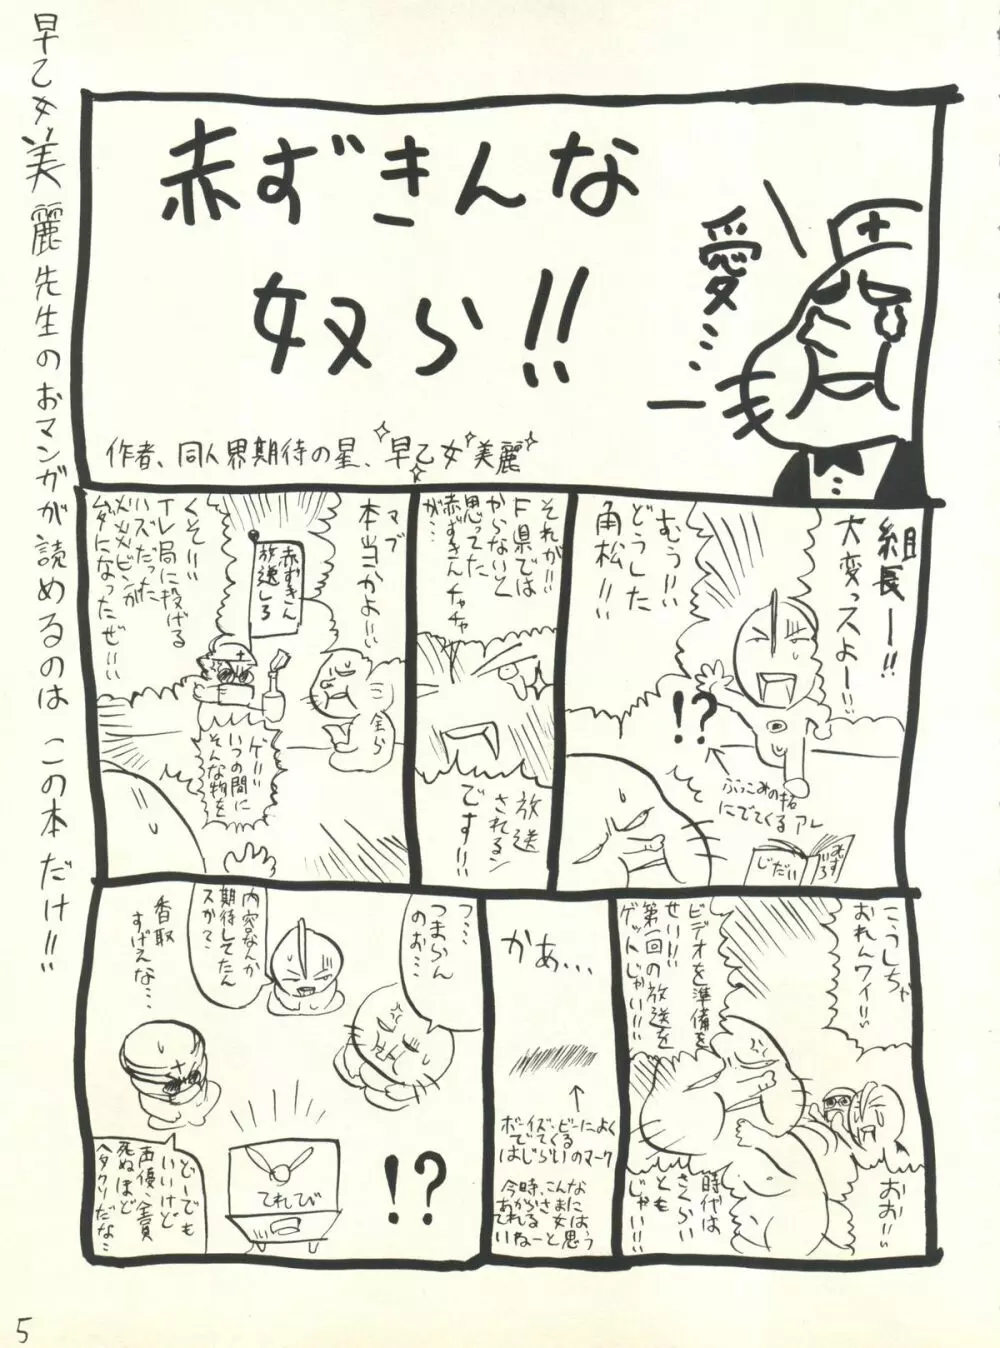 早乙女美麗先生のおマンガが読めるのはこの本だけ!!
赤ずきんな
奴ら!!
愛…
作者、同人界期待の星、早乙女美麗
組長ー!!
大変っスよー!!
むぅ!!
どうした
角松!!!
!?
ぶっこみの拓
にでてくるアレ
むすろ
いろ
じだい
それが!!
F県では
やらないと
思ってた
赤ずきんチャチャ
が…
放送
されるン
です!!!
マブ
本当かよ!!!
金らん
赤ずきん
放送しろ
くそ!!!
TV局に投げる
ハズだった
ビンが
ムダになったぜ!!!
ゲ!!!
いつの間に
そんな物を
こうしちゃ
おれんワイ!!
ビデオを準備を
せい!!!
第一回の放送を
ゲットじゃい!!!
おお!!
時代は
さくらい
とも
じゃい!!!
かあ…
ボーイズ・ビーによく
でてくる
はじらいのマーク
今時、こんな
あからさまに
てれる女は
いねーと思う
つ…
つまらん
のお…
内容なんか
期待してたん
スか?…
香取
すげえな…
!?
てれび
どーでも
いいけど
声優、全員
死ぬほど
ヘタクソだな…
5